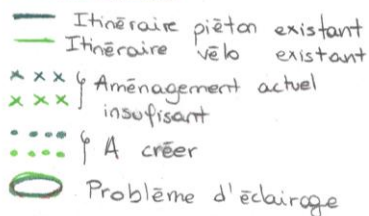 Itinéraire piéton existant
Itinéraire vélo existant
Aménagement actuel
insufisant
A créer
Problème d'éclairage